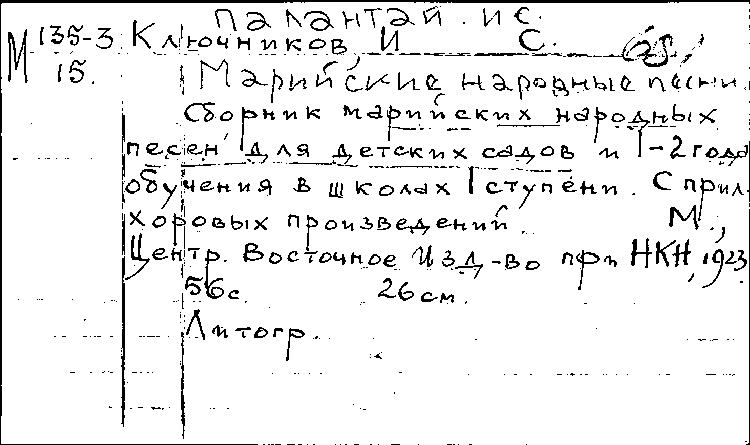 Палантай. И с.
М 135-3 Ключников, И С.
15.
Марийские народные песни.
Сборник марийских народных
песен для детских садов и 1-2 года
обучения в школах I ступени. С прил.
хоровых произведений. М.,
Центр. Восточное Изд-во при НКН, 1923
56 с. 26 см.
Литогр.